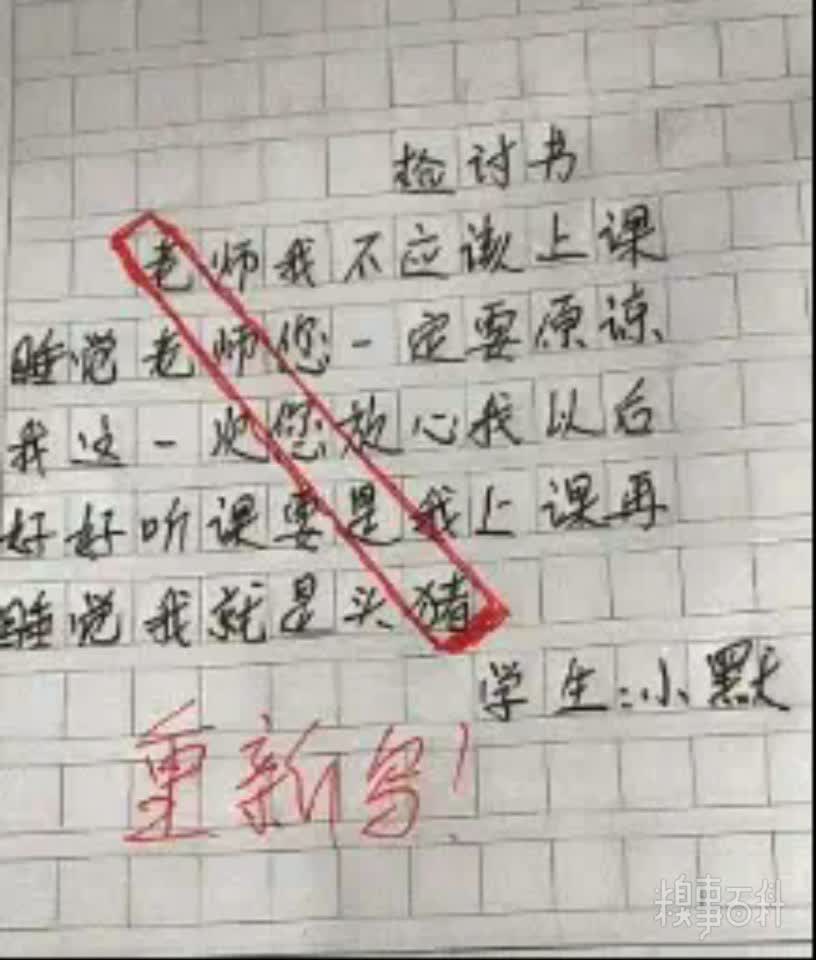 检讨书
老师我不应该上课
睡觉老师您一定要原谅
我这一次您放心我以后
好好听课要是我上课再
睡觉我就是头猪
学生:小默
重新写!
糗事百科